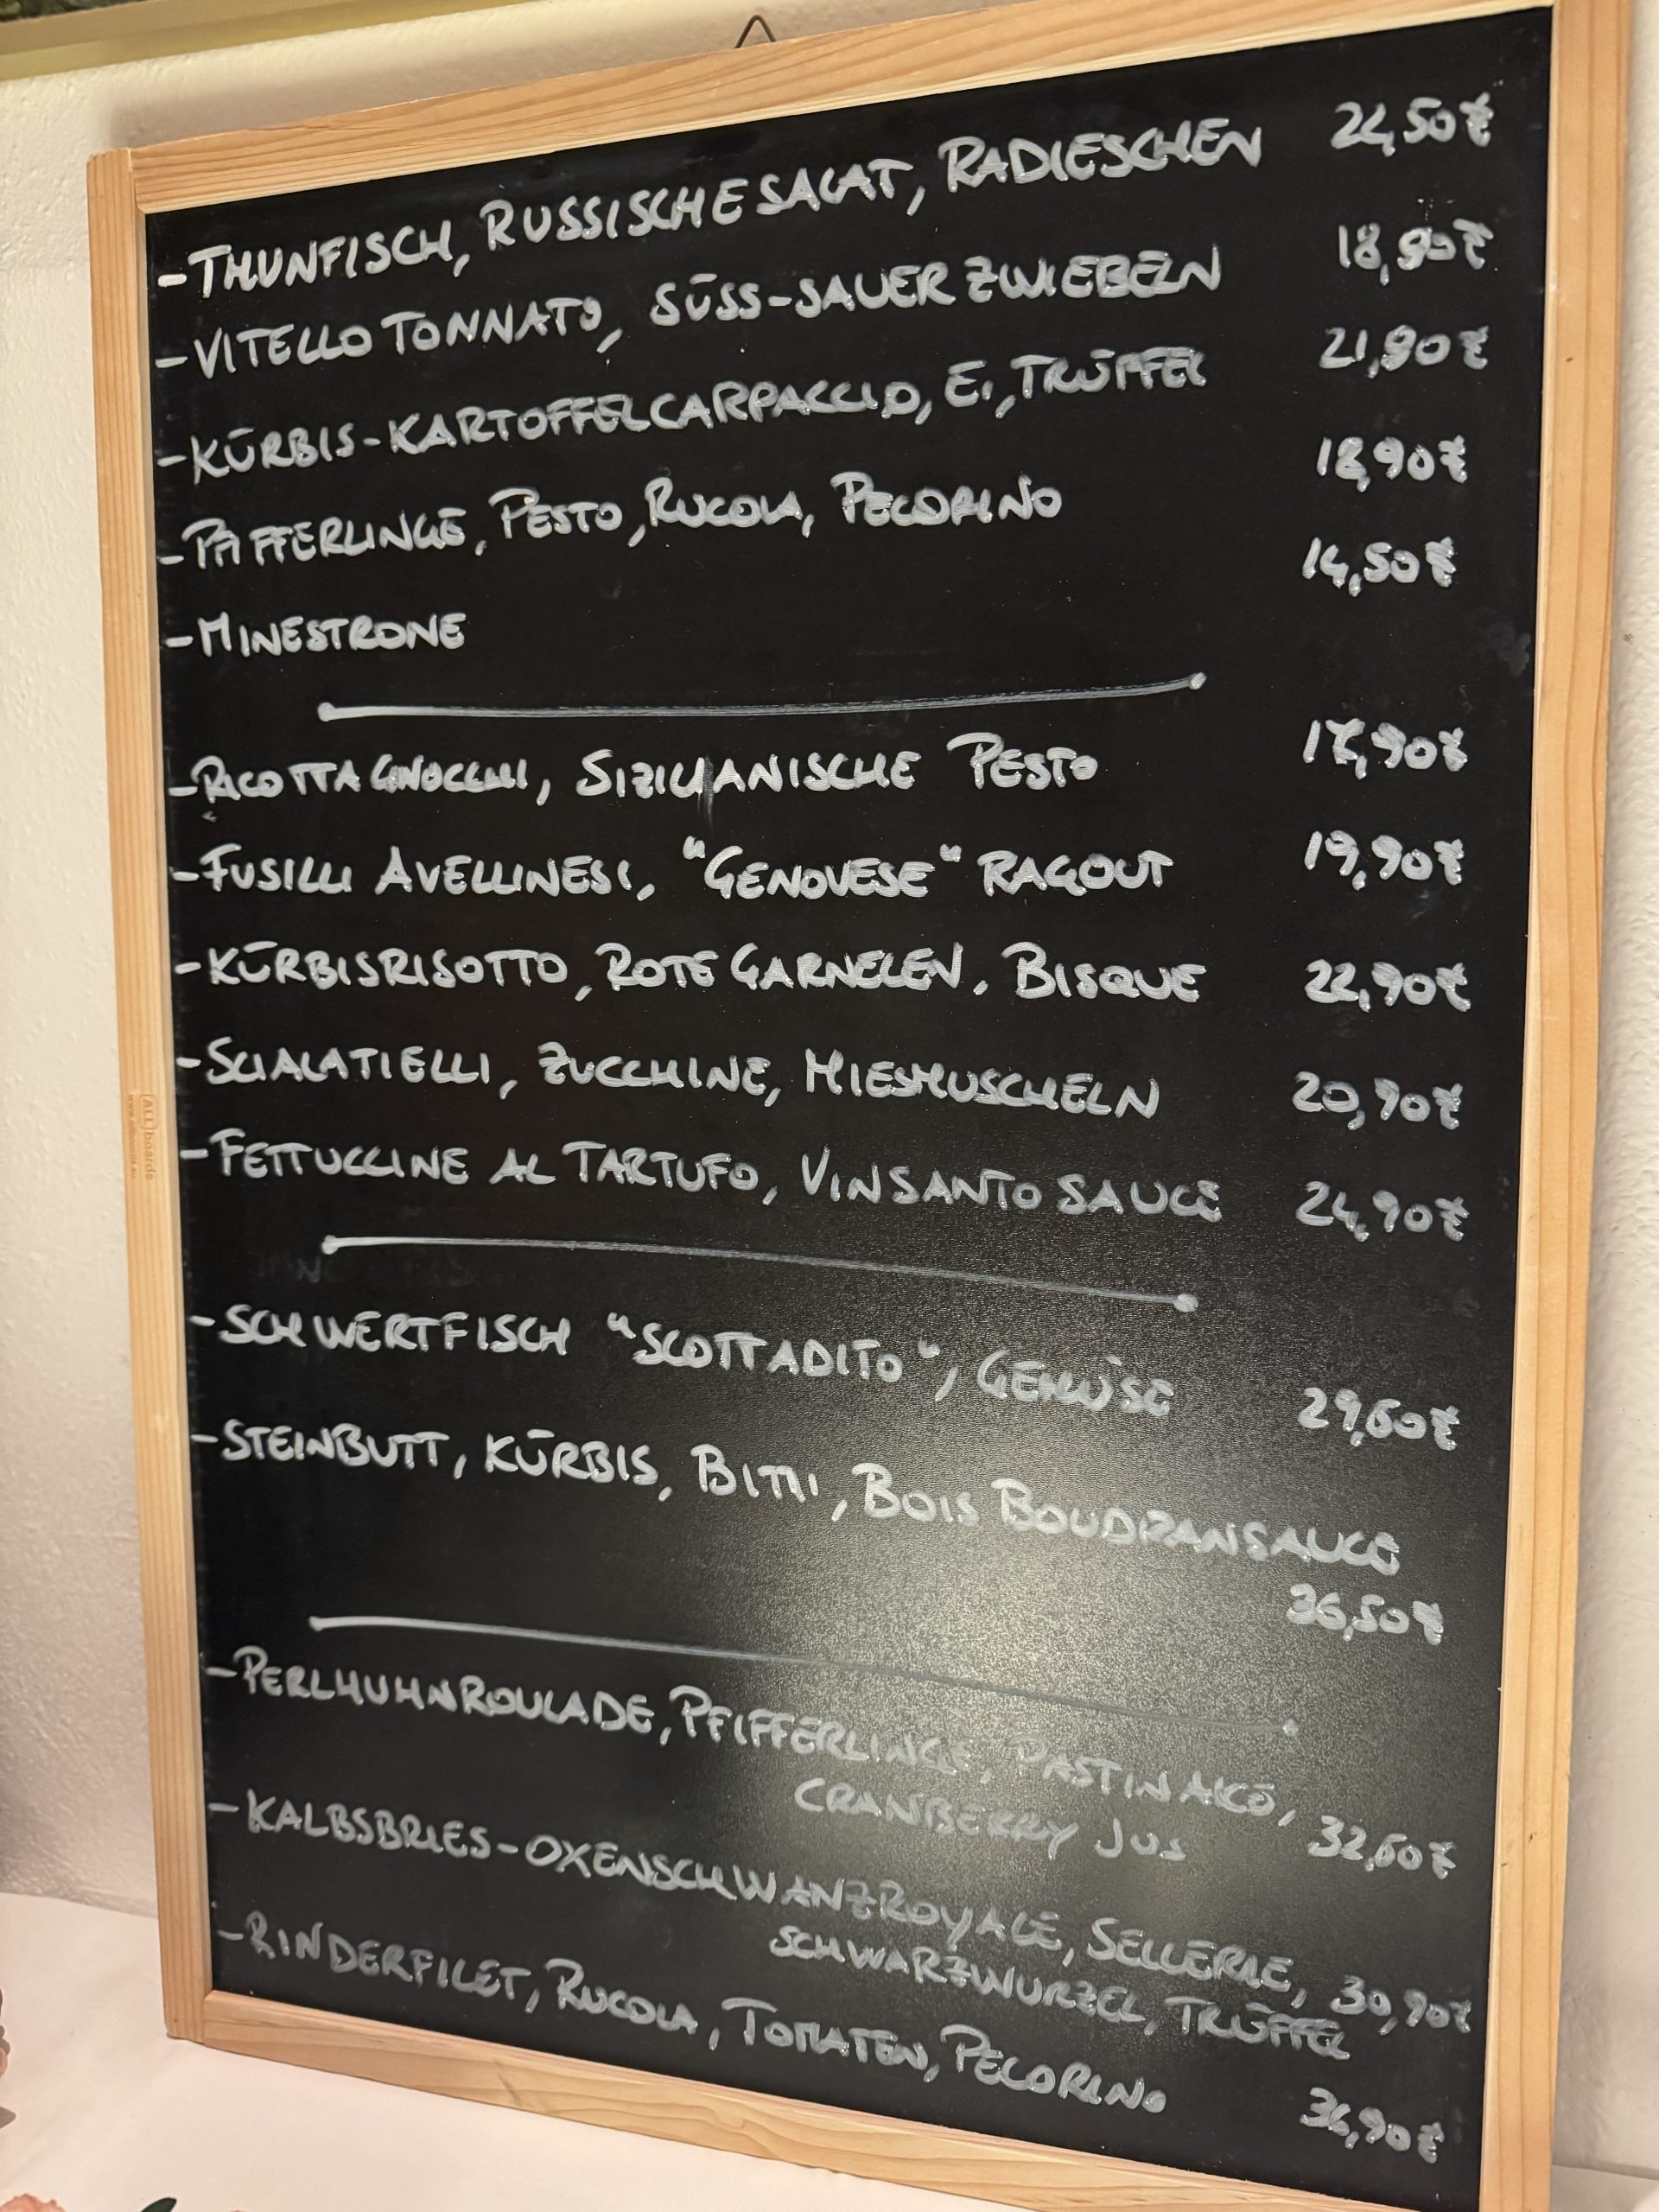 - THUNFISCH, RUSSISCHE SALAT, RADIESCHEN 22,50€
- VITELLO TONNATO, SÜSS-SAUER ZWIEBELN 18,90€
- KÜRBIS-KARTOFFELCARPACCIO, EI, TRÜFFEL 21,90€
- PFIFFERLINGE, PESTO, RUCOLA, PECORINO 18,90€
- MINESTRONE 14,50€
- RICOTTA GNOCCHI, SIZILIANISCHE PESTO 17,90€
- FUSILLI AVELLINESI, "GENOVESE" RAGOUT 19,90€
- KÜRBISRISOTTO, ROTE GARNELEN, BISQUE 22,90€
- SCIALATIELLI, ZUCCHINE, MIESMUSCHELN 20,90€
- FETTUCCINE AL TARTUFO, VINSANTO SAUCE 24,90€
- SCHWERTFISCH "SCOTTADITO", GEMÜSE 29,60€
- STEINBUTT, KÜRBIS, BITTI, BOIS BOUDRANSAUCE
36,50€
- PERLHUHNROULADE, PFIFFERLINGE, PASTINAKE,
CRANBERRY JUS 32,60€
- KALBSBRIES-OXENSCHWANZROYALE, SELLERIE,
SCHWARZWURZEL, TRÜFFEL 30,90€
- RINDERFILET, RUCOLA, TOMATEN, PECORINO
36,90€
ALLboards